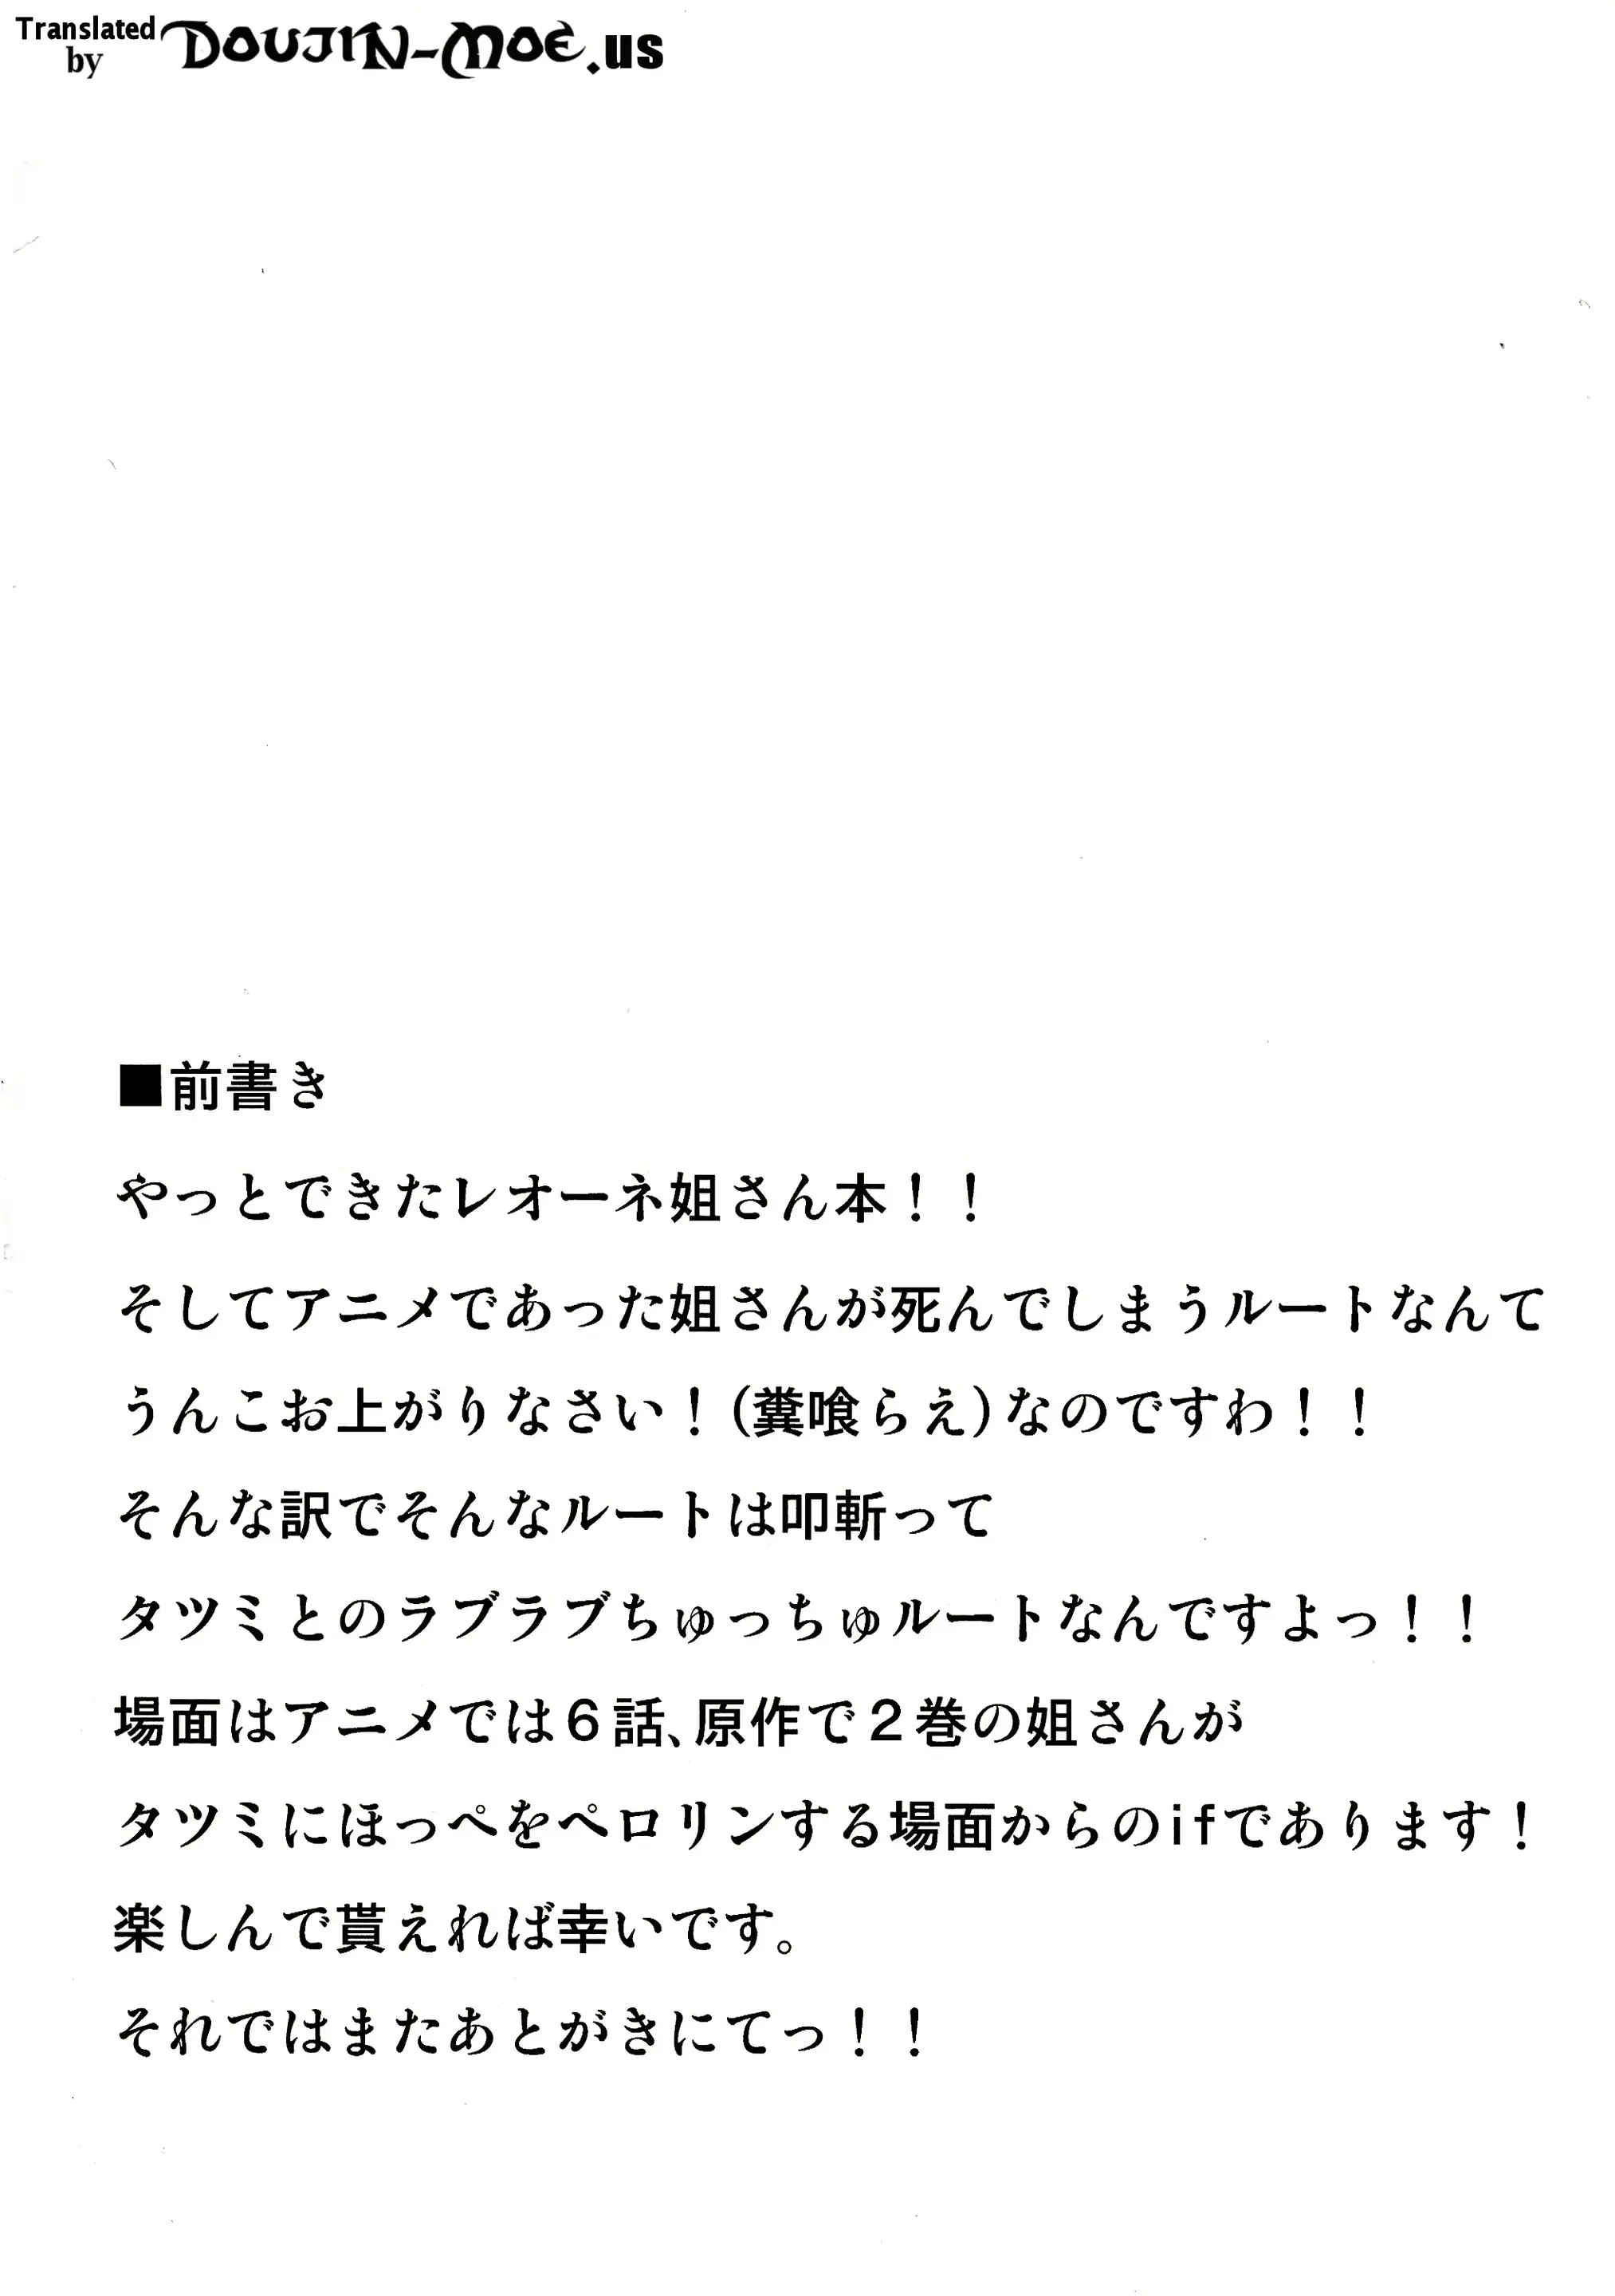 Translated
by DOUJIN-MOE.us
■前書き
やっとできたレオーネ姐さん本！！
そしてアニメであった姐さんが死んでしまうルートなんて
うんこお上がりなさい！(糞喰らえ)なのですわ！！
そんな訳でそんなルートは叩斬って
タツミとのラブラブちゅっちゅルートなんですよっ！！
場面はアニメでは６話、原作で２巻の姐さんが
タツミにほっぺをペロリンする場面からのifであります！
楽しんで貰えれば幸いです。
それではまたあとがきにてっ！！